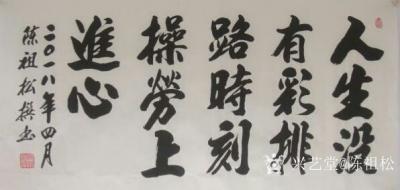 人生没
有彩排
路時刻
操勞上
進心
二〇一八年四月
陈祖松撰书
兴艺堂@陈祖松